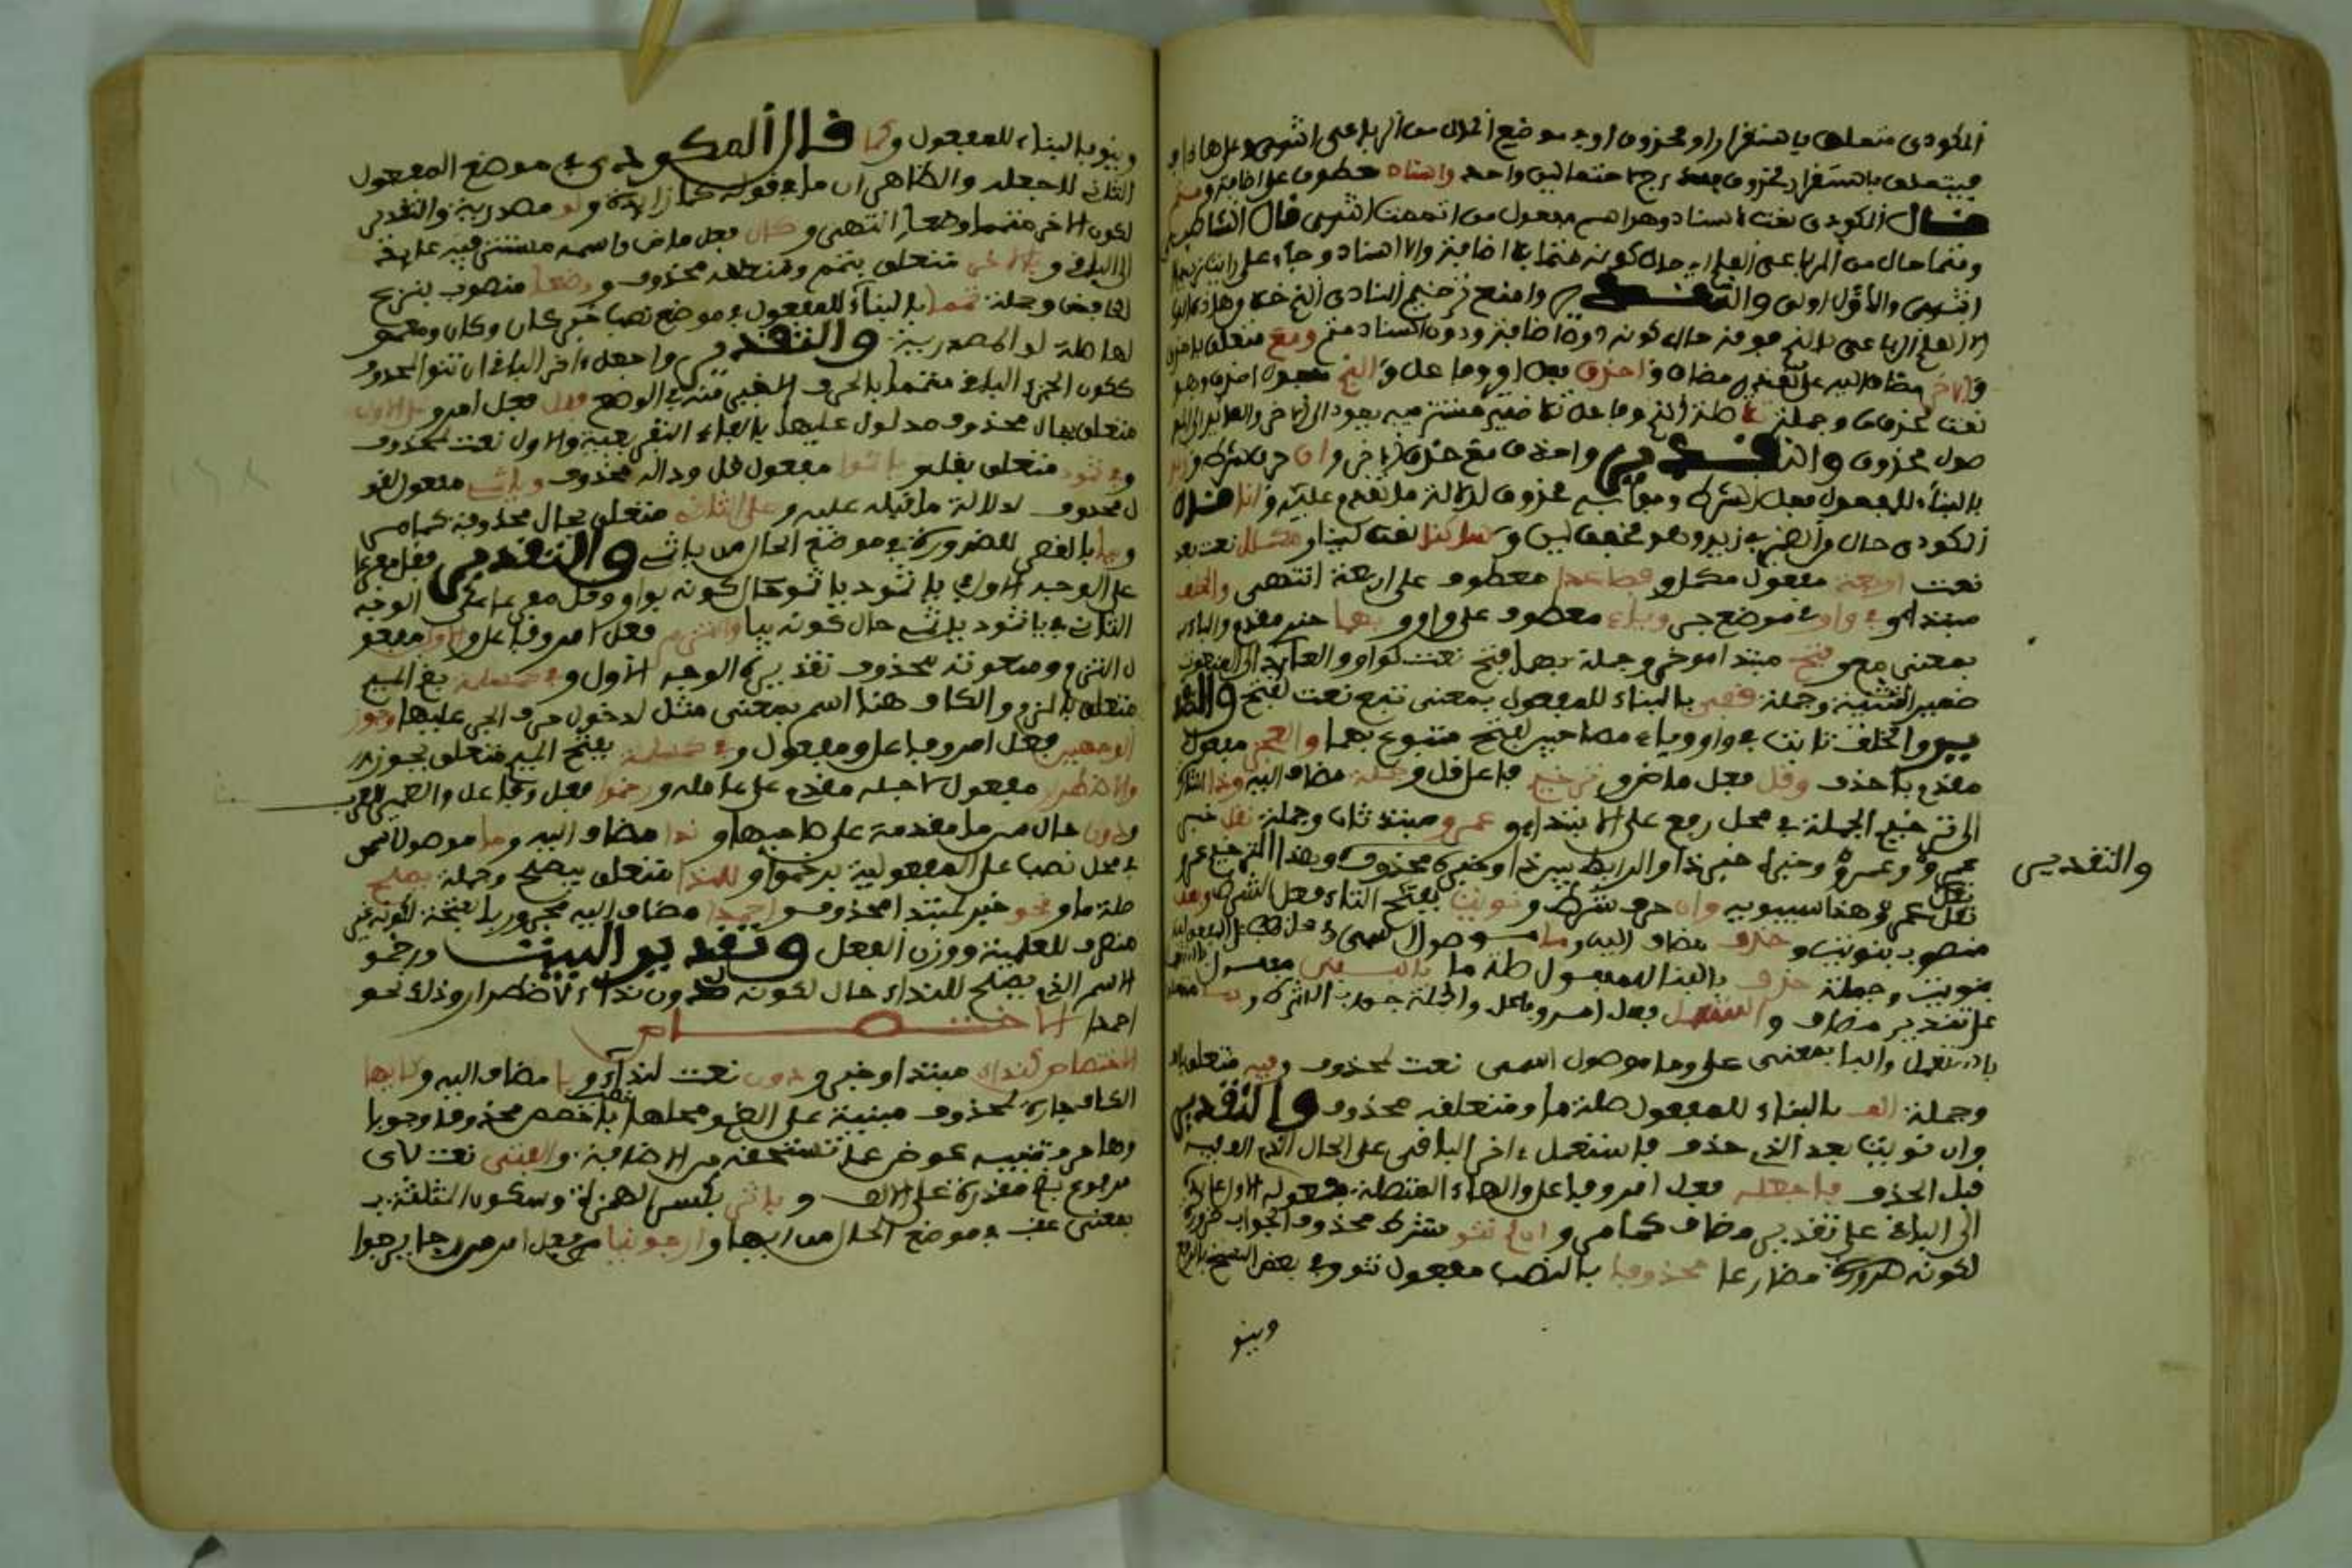 المكودي متعلق باستقرار او محذوف او في موضع الحال من الرباعي انتهى وعلى هذا
فيتعلق باستقرار محذوف واحد واسناد معطوف على اضافة ومتم
قال المكودي نعت لاسناد وهو اسم مفعول من اتممت انتهى قال الشاطبي
ومتما حال من الرباعي العلم اي حال كونه متما بلا اضافة ولا اسناد وجاء على
انتهى والاول اولى والتقدير وامنع ترخيم المنادى الخ خلا وهاذه
الا العلم الرباعي بالنج فوقه حال كونه دون اضافة ودون اسناد متم ومع متعلق باحذف
والاخر مضاف اليه على تقدير مضاف واحذف فعل امر وفاعل والذي مفعول احذف وهو
نعت لمحذوف وجملة تلا صلة الذي وفاعل تلا ضمير مستتر فيه يعود الى الاخر والعايد الى المو
صول محذوف والتقدير واحذف مع حذف الاخر وان حرف شرط وزيد
بالبناء للمفعول فعل الشرط وجوابه محذوف لدلالة ما تقدم عليه ولينا قال
المكودي حال من الضمير في زيد وهو مخفف لين وساكنا نعت لينا ومكملا نعت بعد
نعت اربعة مفعول مكملا وفصاعدا معطوف على اربعة انتهى والخلف
مبتدا وفي واو في موضع جر وياء معطوف على واو وبهما خبر مقدم والباء
بمعنى مع وفتح مبتدا موخر وجملة بهما فتح نعت لواو والعايد الى المنعوت
ضمير التثنية وجملة قفي بالبناء للمفعول بمعنى تبع نعت لفتح والتقد
ير والخلف ثابت في واو وياء مصاحبين لفتح متبوع بهما والعجز مفعول
مقدم باحذف وقل فعل ماض وترخيم فاعل قل وجملة مضاف اليه وذا اشارة
الى ترخيم الجملة في محل رفع على الابتداء وعمرو مبتدا ثان وجملة نقل خبر
عمرو وعمرو وخبره خبر ذا والرابط بين ذا وخبره محذوف وهذا الترخيم عمرو
نقل عمرو هذا سيبويه وان حرف شرط ونويت بفتح التاء فعل الشرط وبعد
منصوب بنويت وحذف مضاف اليه وما موصول اسمي في محل نصب على المفعولية
بنويت وجملة حذف بالبناء للمفعول صلة ما فالباقي مفعول
على تقدير مضاف واستعمل فعل امر وفاعل والجملة جواب الشرط وبما متعلق
باستعمل والباء بمعنى على وما موصول اسمي نعت لمحذوف وفيه متعلق بالف
وجملة الف بالبناء للمفعول صلة ما ومتعلقه محذوف والتقدير
وان نويت بعد الترخيم حذف فاستعمل ءاخر الباقي على الحال الذي الف فيه
قبل الحذف فاجعله فعل امر وفاعل والهاء المتصلة مفعوله الاول عائدة
الى الباقي على تقدير مضاف كما مر وان لم تنو شرط محذوف الجواب ضرورة
لكونه شرطه مضارعا محذوفا بالنصب مفعول تنو وفي بعض النسخ بالرفع
وينو
والتقدير
وينو بالبناء للمفعول وكما قال المكودي في موضع المفعول
الثاني لاجعله والظاهر ان ما في قوله كما زايدة ولو مصدرية والتقدير
لكون الاخر متمما وضعا انتهى وكان فعل ماض واسمه مستتر فيه عايد
الى الباقي وبالاخر متعلق بتمم ومتعلقه محذوف ووضعا منصوب بنزع
الخافض وجملة تمما بالبناء للمفعول في موضع نصب خبر كان وكان ومعمو
لها صلة لو المصدرية والتقدير واجعل ءاخر الباقي ان تنو المحذوف
ككون الجزء الباقي متمما بالحرف الاخير منه في الوضع فقل فعل امر وعلى الاول
متعلق بحال محذوف مدلول عليها بالفاء التفريعية والاول نعت لمحذوف
وفي ثمود متعلق بقل ويا ثمو مفعول قل وداله محذوف ويا ثمي مفعول لقو
ل محذوف لدلالة ما قبله عليه وعلى الثاني متعلق بحال محذوفة كما مر
وبيا بالقصر للضرورة في موضع الحال من يا ثمي والتقدير فقل مفرعا
على الوجه الاول في يا ثمود يا ثمو حال كونه بواو وقل مفرعا على الوجه
الثاني في يا ثمود يا ثمي حال كونه بيا والتزم فعل امر وفاعل والاول مفعو
ل التزم ومنعوته محذوف تقديره الوجه الاول وفي كمسلمة بضم الميم
متعلق بالتزم والكاف هنا اسم بمعنى مثل لدخول حرف الجر عليها وجوز
الوجهين فعل امر وفاعل ومفعول وفي كمسلمة بفتح الميم متعلق بجوز
ولاضطرار مفعول لاجله مقدم على عامله ورخموا فعل وفاعل والضمير للعرب
ودون حال من ما مقدمة على صاحبها وندا مضاف اليه وما موصول اسمي
في محل نصب على المفعولية برخموا وللندا متعلق بيصلح وجملة يصلح
صلة ما ونحو خبر لمبتدا محذوف واحمدا مضاف اليه مجرور بالفتحة لكونه غير
منصرف للعلمية ووزن الفعل وتقدير البيت ورخمو
الاسم الذي يصلح للنداء حال كونه دون نداء لاضطرار وذلك نحو
احمدا الاختصاص
الاختصاص كنداء مبتدا وخبر ودون نعت لنداء ويا مضاف اليه وكايها
الكاف جارة لمحذوف مبنية على الضم ومحلها نصب باخص محذوفا وجوبا
وها حرف تنبيه عوض عما تستحقه من الاضافة والفتى نعت لاي
مرفوع بضمة مقدرة على الالف وباثر بكسر الهمزة وسكون المثلثة
بمعنى عقب في موضع الحال من ايها وارجونيا فعل امر من رجا يرجوا